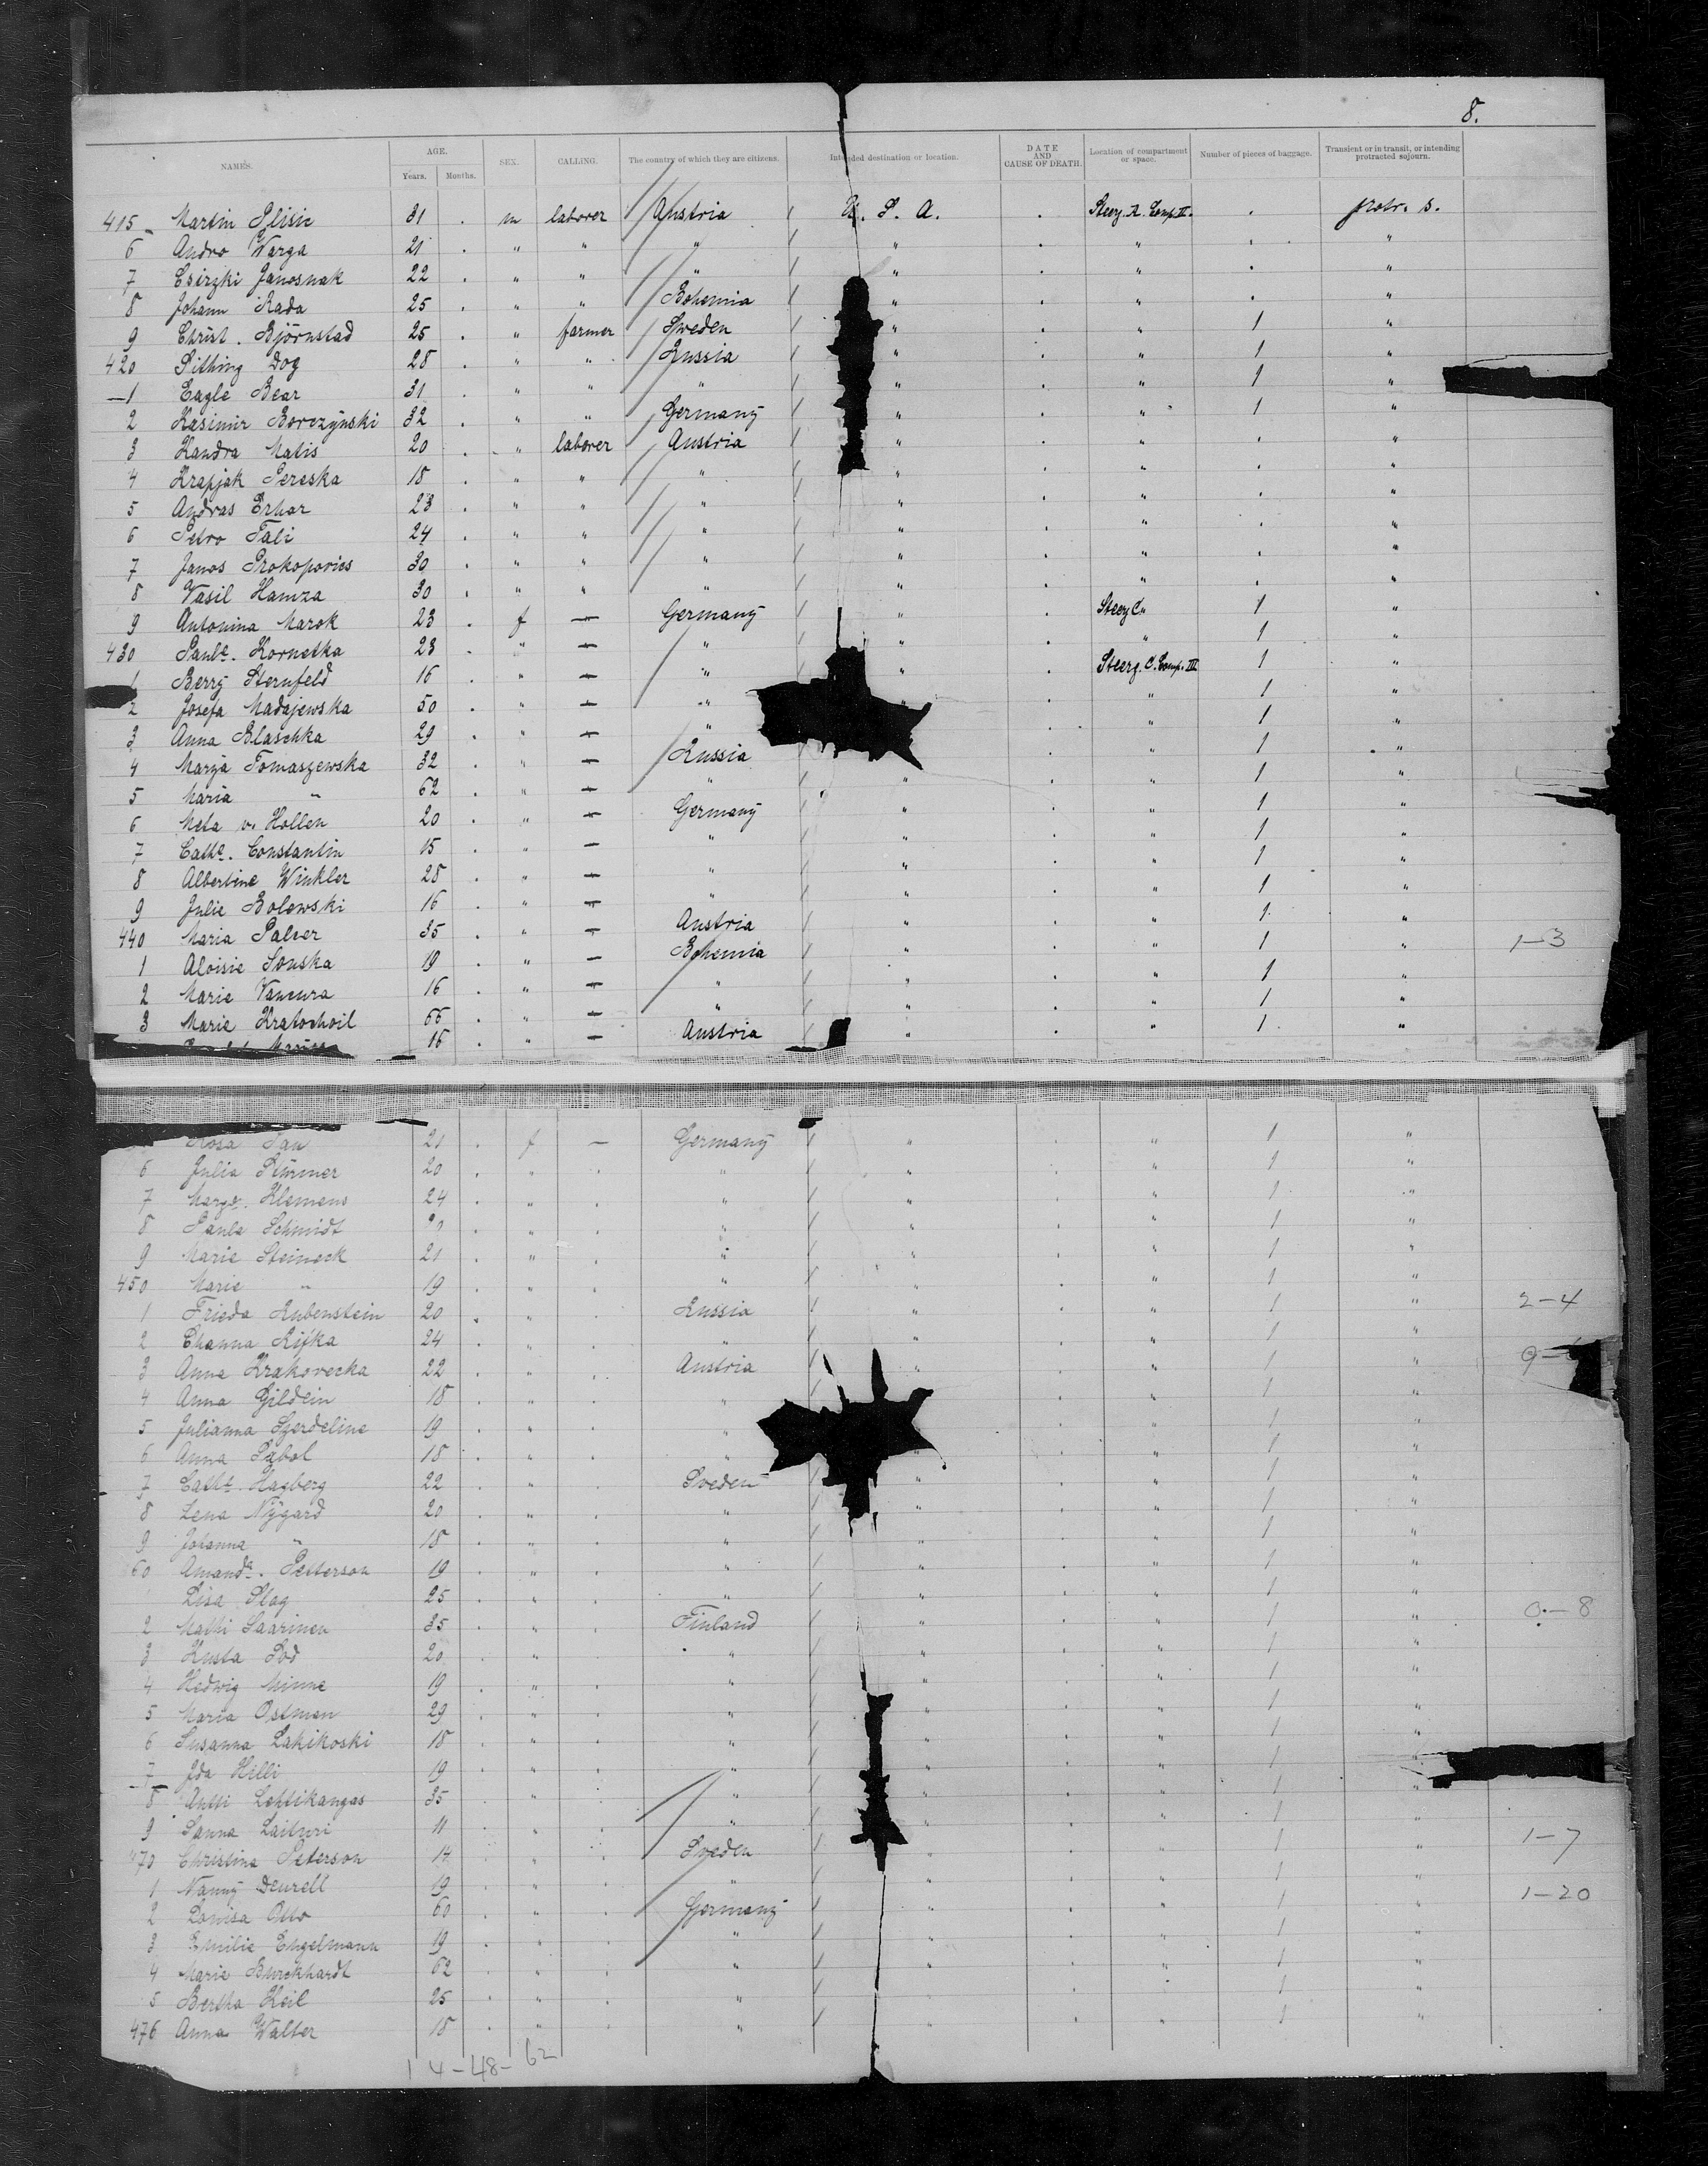 8.
NAMES. AGE. Years. Months. SEX. CALLING. The country of which they are citizens. Intended destination or location. DATE AND CAUSE OF DEATH. Location of compartment or space. Number of pieces of baggage. Transient or in transit, or intending protracted sojourn.
415 Martin Plisic 31 . m laborer Austria / U. S. A. . Steerg. A. Comp. II. . protr. s.
6 Andro Warga 21 . " " " / " . " . "
7 Csirzki Janosnak 22 . " " " / " . " . "
8 Johann Rada 25 . " " Bohemia / " . " . "
9 Christ. Björnstad 25 . " farmer Sweden / " . " 1 "
420 Sitting Dog 28 . " " Russia / " . " 1 "
1 Eagle Bear 31 . " " " / " . " 1 "
2 Kasimir Borczynski 32 . " " Germany / " . " 1 "
3 Handra Matis 20 . " laborer Austria / " . " . "
4 Krapjak Pereska 18 . " " " / " . " . "
5 Andras Erhar 23 . " " " / " . " . "
6 Petro Tali 24 . " " " / " . " . "
7 Janos Prokopovics 30 . " " " / " . " . "
8 Vasil Hamza 30 . " " " / " . " . "
9 Antonina Marok 23 . f — Germany / " . Steerg C. 1 "
430 Paule. Kornetka 23 . " — " / " . " 1 "
1 Berry Sternfeld 16 . " — " / . Steerg. C. Comp. III 1 "
2 Josefa Madajewska 50 . " — " " . " 1 "
3 Anna Blaschka 29 . " — " . " 1 "
4 Marya Tomaszewska 32 . " — Russia . " 1 "
5 Maria " 62 . " — " / " . " 1 "
6 Meta v. Hollen 20 . " — Germany / " . " 1 "
7 Cathe. Constantin 15 . " — " / " . " 1 "
8 Albertine Winkler 28 . " — " / " . " 1 "
9 Julie Bolewski 16 . " — " / " . " 1 "
440 Maria Palzer 35 . " — Austria / " . " 1 " 1-3
1 Aloisie Souska 19 . " — Bohemia / " . " 1 "
2 Marie Vancura 16 . " — " / " . " 1 "
3 Marie Kratochvil 66 . " — " / " . " 1 "
16 . " — Austria / "
Rosa 21 . f — Germany / " . " 1 "
6 Julia Stürmer 20 . " . " / " . " 1 "
7 Marge. Klemens 24 . " . " / " . " 1 "
8 Paula Schmidt . " . " / " . " 1 "
9 Marie Steineck 21 . " . " / " . " 1 "
450 Marie " 19 . " . " / " . " 1 "
1 Frieda Rubenstein 20 . " . Russia / " . " 1 " 2-4
2 Channa Rifka 24 . " . " / " . " 1 "
3 Anna Krakovecka 22 . " . Austria / " . " 1 "
4 Anna Gildein 18 . " . " / . " 1 "
5 Julianna Szerdeline 19 . " . " . " 1 "
6 Anna Sabol 18 . " . " " . " 1 "
7 Cathe. Hagberg 22 . " . Sveden / " . " 1 "
8 Lena Nygard 20 . " . " / " . " 1 "
9 Johanna " 18 . " . " / " . " 1 "
60 Amanda. Petterson 19 . " . " / " . " 1 "
Lisa Slag 25 . " . " / " . " 1 "
2 Mathi Saarinen 35 . " . Finland / " . " 1 " 0-8
3 Kusta 20 . " . " / " . " 1 "
4 Hedwig Minne 19 . " . " / " . " 1 "
5 Maria Ostman 29 . " . " / " . " 1 "
6 Susanna Lakikoski 18 . " . " / " . " 1 "
7 Ida Hilli 19 . " . " / " . " 1 "
8 Antti Lehtikangas 35 . " . " / " . " 1 "
9 Sanna Laituri 11 . " . " / " . " 1 "
470 Christina Peterson 14 . " . Sveden / " . " 1 " 1-7
1 Nanny Deurell 19 . " . " / " . " 1 "
2 Louisa Otto 60 . " . Germany / " . " 1 " 1-20
3 Emilie Engelmann 19 . " . " / " . " 1 "
4 Marie Burckhardt 62 . " . " / " . " 1 "
5 Bertha Keil 25 . " . " / " . " 1 "
476 Anna Walter 18 . " . " / " . " 1 "
14-48-62